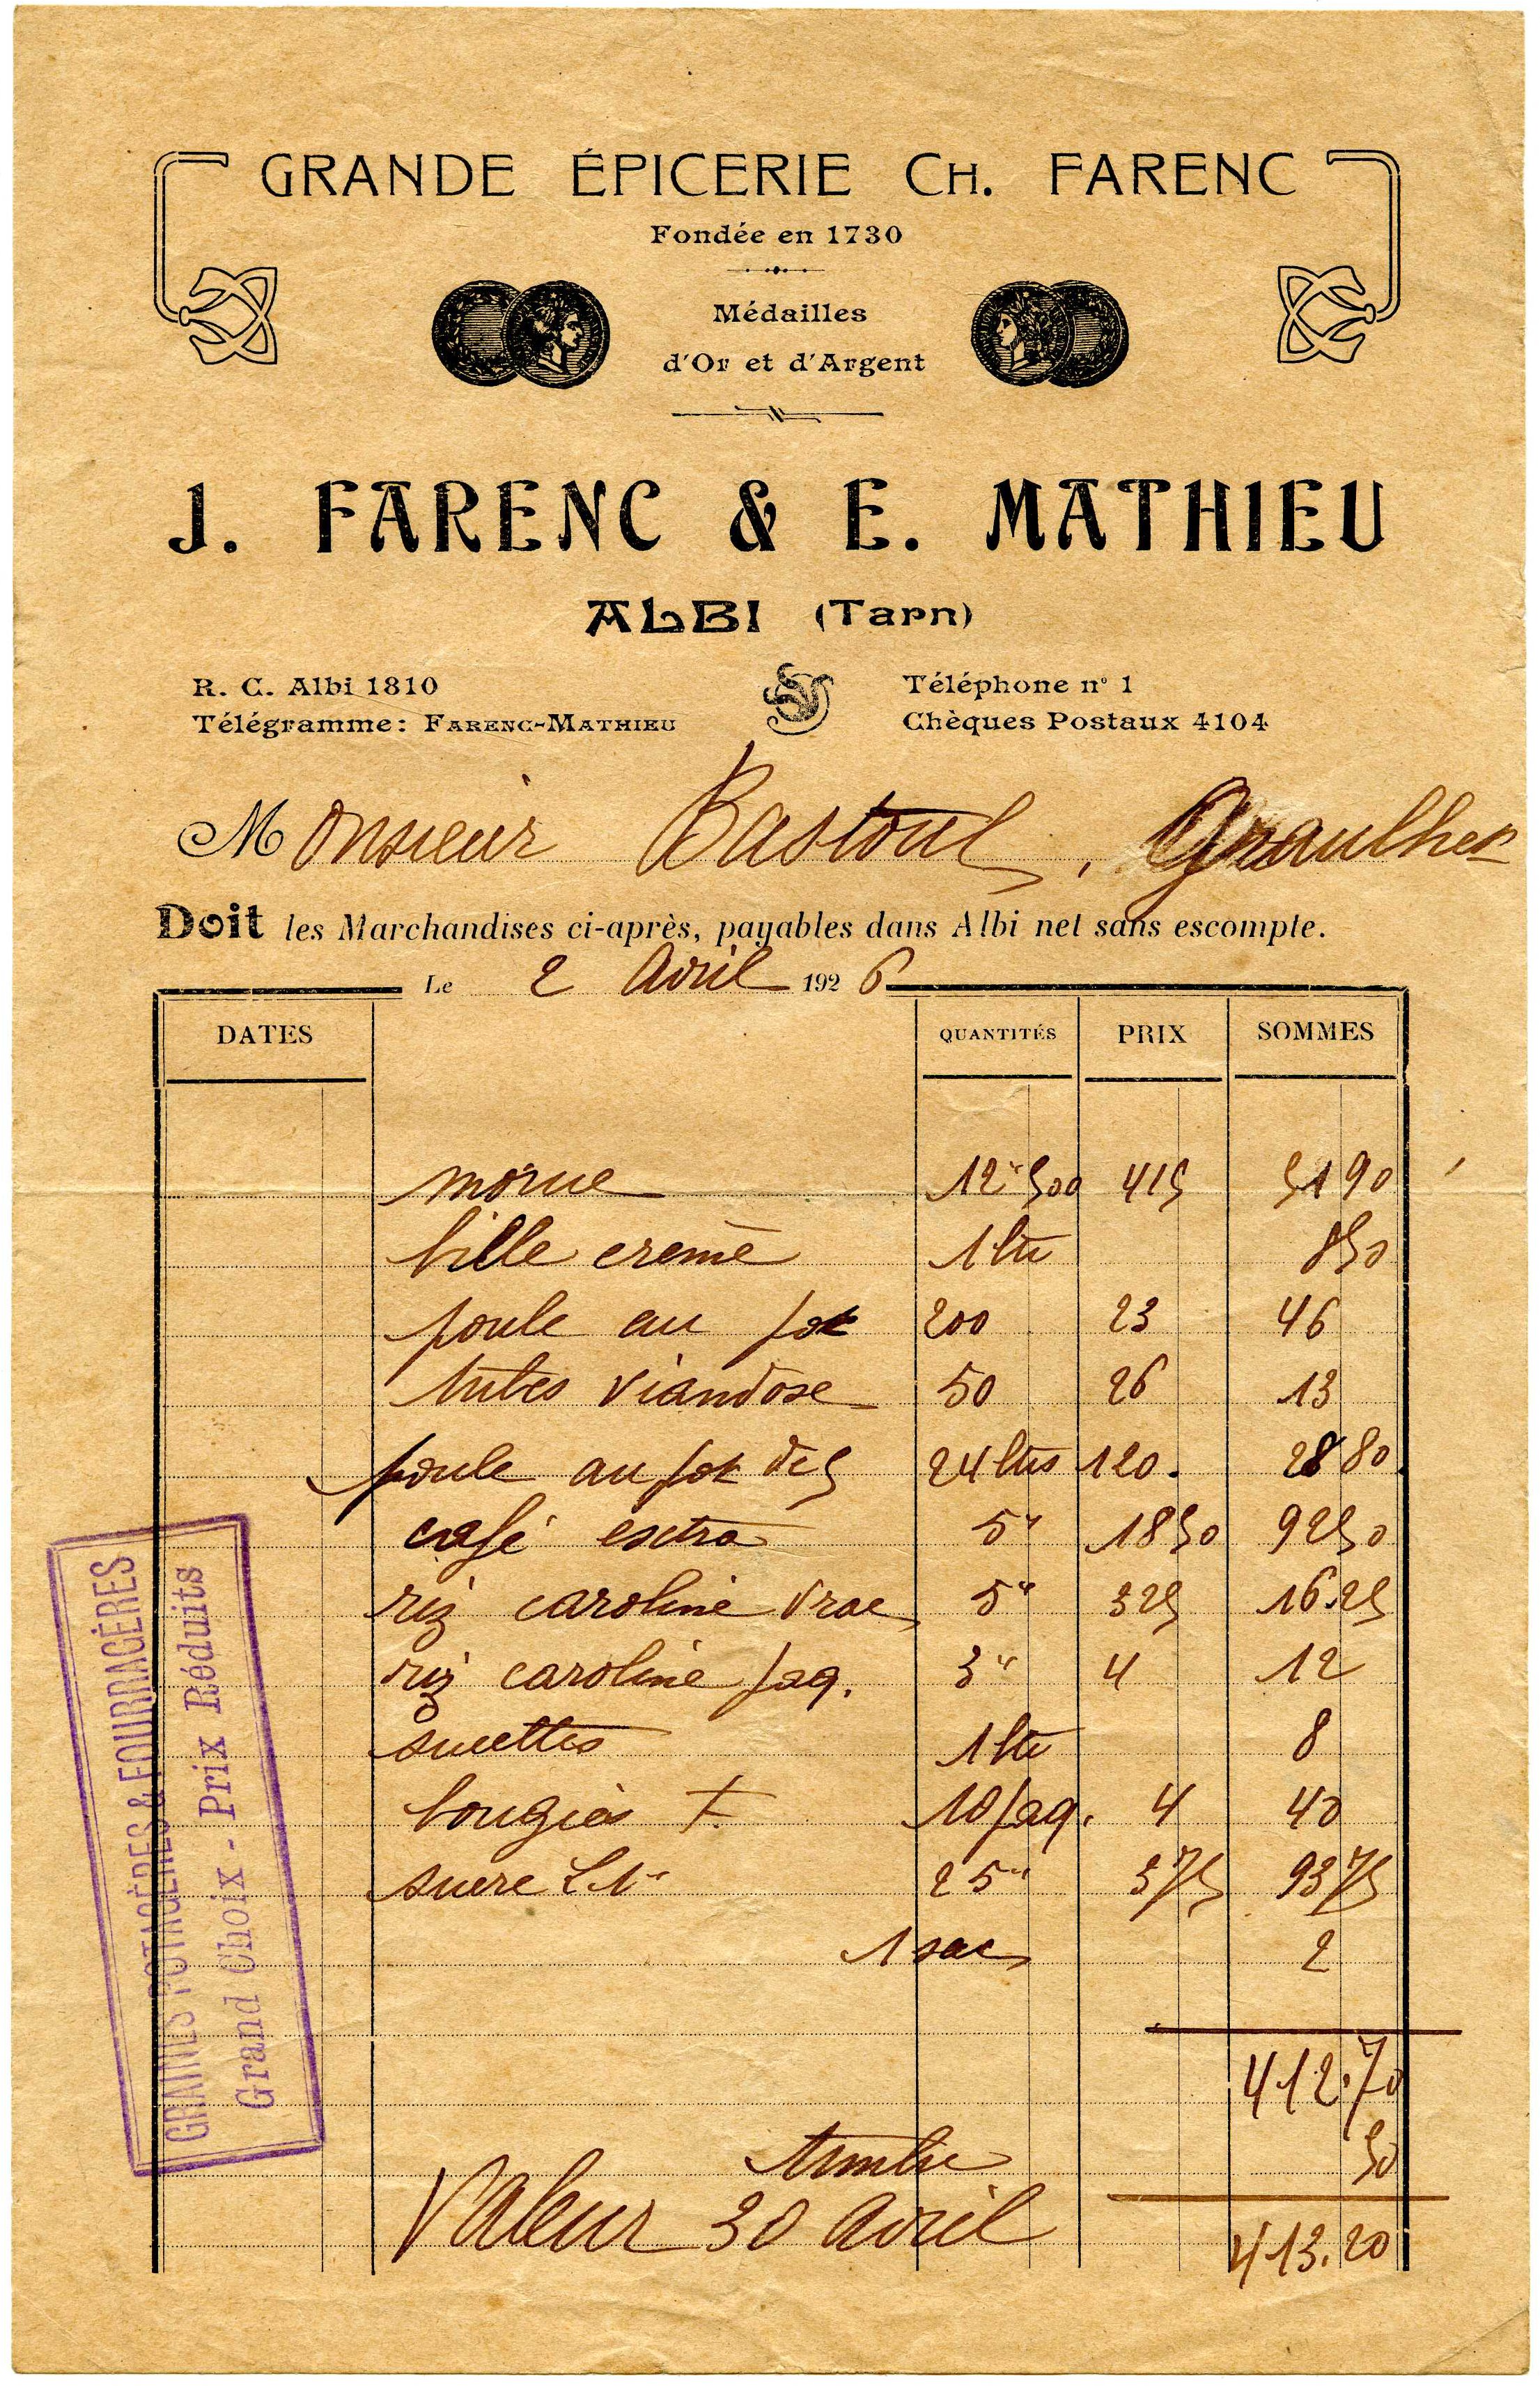 GRANDE ÉPICERIE CH. FARENC
Fondée en 1730
Médailles
d'Or et d'Argent
J. FARENC & E. MATHIEU
ALBI (Tarn)
R. C. Albi 1810
Téléphone n° 1
Télégramme: FARENC-MATHIEU
Chèques Postaux 4104
Monsieur Bastoul, Graulhet
Doit les Marchandises ci-après, payables dans Albi net sans escompte.
Le 2 Avril 1926
DATES QUANTITÉS PRIX SOMMES
morue 12k500 415 51 90
bille creme 1 bte 8 50
poule au pot 200 23 46
tubes viandose 50 26 13
poule au pot 24 btes 120. 28 80
café extra 5k 18 50 92 50
riz caroline vrac 5k 325 16.25
riz caroline paq. 3k 4 12
sucettes 1 bte 8
bougies 10 paq. 4 40
sucre 25k 375 93 75
1 sac 2
412.70
timbre 50
Valeur 30 Avril 413.20
GRAINES POTAGÈRES & FOURRAGÈRES
Grand Choix - Prix Réduits